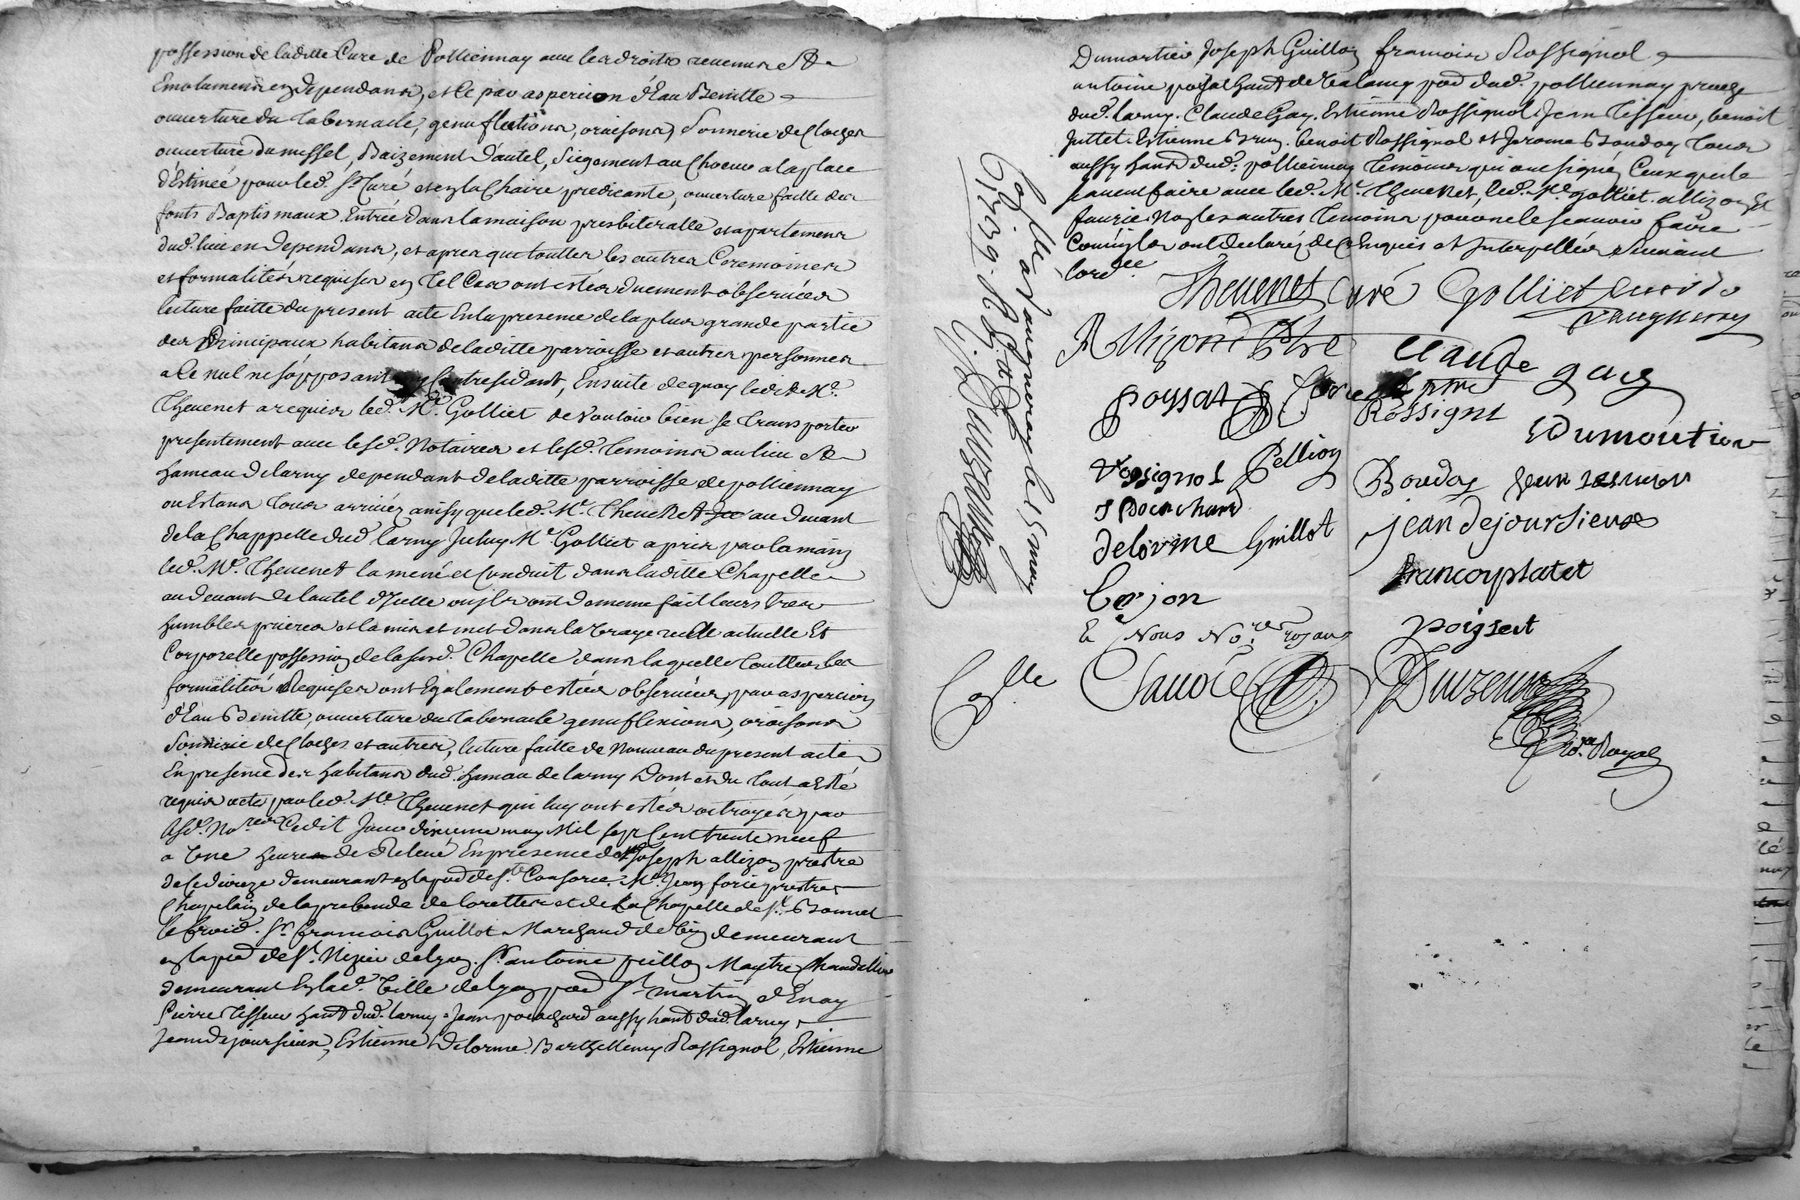 possession de laditte Cure de Pollionnay avec les droits revenus Et
Emolumens en dependans, et ce par aspercion d'Eau Benitte
ouverture du tabernacle, genuflections, oraisons, Sonnerie de Cloches
ouverture du missel, Baizement d'autel, Siegement au Choeur a la place
d'Estinée pour led. Sr Curé et en la Chaire predicante, ouverture faitte des
fonts Baptismaux Entrée dans la maison presbiteralle et apartemens
dud. lieu en dependans, et apres que touttes les autres Ceremonies
et formalités requises en tel Cas ont estées duement observées
lecture faitte du present acte En la presence de la plus grande partie
des Principaux habitans de laditte parroisse et autres personnes
a Ce nul ne s'opposant ny Contresidant, Ensuite de quoy ledit Me
Thevenet a requis led. Me Golliet de vouloir bien se transporter
presentement avec lesd. Notaires et lesd. temoins au lieu et
hameau de larny dependant de laditte parroisse de pollionnay
ou Estans tous arrivéz ainsy que led. Me Thevenet au devant
de la Chappelle dud. larny Iceluy Me Golliet a pris par la main
led. Me Thevenet la mené et Conduit dans laditte Chapelle
au devant de l'autel d'Icelle ou ils ont de meme fait leurs tres
humbles prieres et la mis et met dans la vraye reelle actuelle Et
Corporelle possession de lasusd. Chapelle dans laquelle touttes les
formalités Requises ont Egalement estées observées, par aspercion
d'Eau Benitte, ouverture du tabernacle genuflexions, oraisons
Sonnerie de Cloches et autres, lecture faitte de Nouveau du present acte
En presence des habitans dud. hameau de larny Dont et du tout a Esté
requis acte par led. Me Thevenet qui luy ont estés octroyés par
lesd. Nores Cedit Jour dixieme may Mil sept Cent trente neuf
a Une heure de Relevé En presence de Me Joseph allizon prestre
de Ce dioceze demeurant en la pard. de Ste Consorce, Me Jean forie prestre
Chapelain de la prebende de lorette et de La Chapelle de St Bonnet
le froid. Sr francois Guillot Marchand de demeurant
en la pard de St Nizier de lyon. Sr antoine peillon Maytre Chandellier
demeurant En lad. Ville de lyon pard St martin d'Enay
Pierre tisseur hant dud. larny, Jean ponchard aussy hant dud. larny
Jean dejoursieux, Estienne Delorme Barthellemy Rossignol, Estienne
Dumortier Joseph Guillot francois Rossignol
antoine poysat hant de Valancy pard dud. pollionnay
dud. larny. Claude Gay. Estienne Rossignol Jean tisseur, benoit
Juttet. Estienne Bruy. benoit Rossignol et Jerome Bouday tous
aussy hans dud. pollionnay temoins qui ont signé Ceux qui le
scavent faire avec led. Me Thevenet, led. Me golliet. allizon Et
faurie Non les autres temoins pour ne le scavoir faire
Comm'ils ont declaréz de Ce Enquis et Interpellés Suivant
lordce
Thevenet Curé Golliet Curé de
vaugneray
Allizon Ptre claude gay
poysat forie ptre
Rossignt
Edumoutier
Rossignol Pellion
Bouday Jean tesseur
J Poinchard
delorme Guillot
jean dejoursieux
Cojon
francoy platet
Et Nous Nores royaux
poizsect
Collé
Savoie
Duizeux
Nore Royal
Collé a vaugneray le 15 may